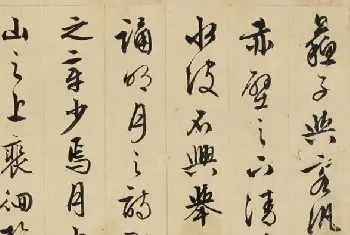 蘇子與客汎
赤壁之下清
水波不興舉
誦明月之詩
之章少焉月
山之上裵佪